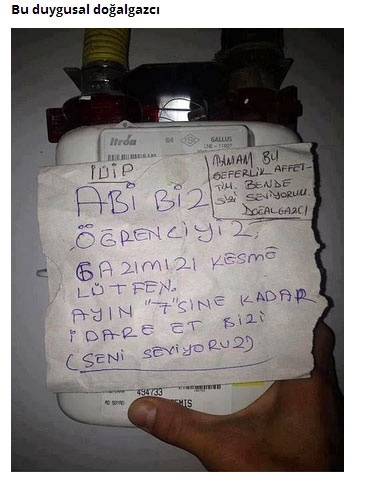 Bu duygusal doğalgazcı
Itrón
G4
GALLUS
ABİ BİZ
ÖĞRENCİYİZ,
GAZIMIZI KESME
LÜTFEN.
AYIN "7"SİNE KADAR
İDARE ET BİZİ
(SENİ SEVİYORUZ)
TAMAM BU
SEFERLİK AFFET-
TİM. BENDE
SİZİ SEVİYORUM.
DOĞALGAZCI
494733